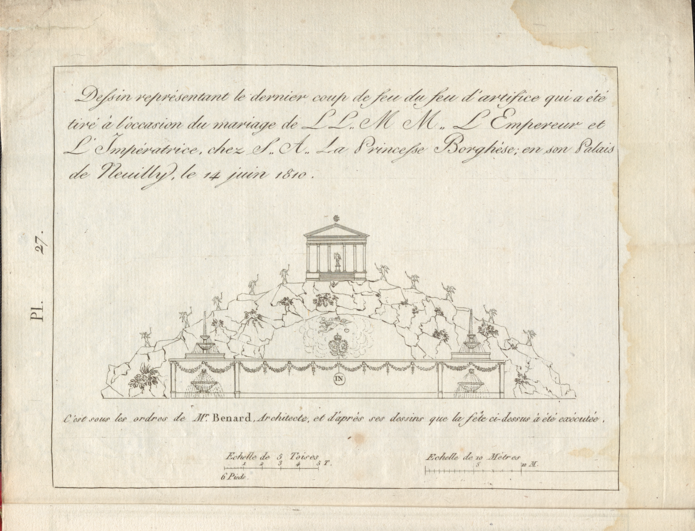 Dessin représentant le dernier coup de feu du feu d'artifice qui a été
tiré à l'occasion du mariage de L L., M M., L'Empereur et
L'Impératrice, chez S., A., La Princesse Borghèse; en son Palais
de Neuilly, le 14 juin 1810.
Pl. 27.
IN
C'est sous les ordres de Mr. Benard, Architecte, et d'après ses dessins que la fête ci-dessus à été exécutée.
Echelle de 5 Toises
1 2 3 4 5 T.
6 Pieds
Echelle de 10 Mètres
5 10 M.